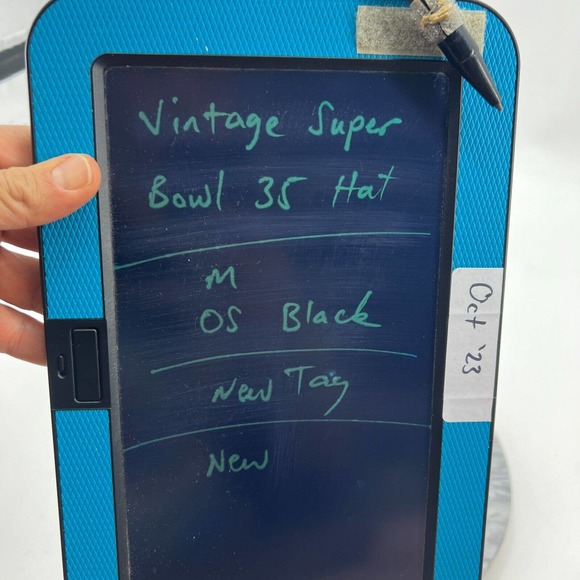 Vintage Super
Bowl 35 Hat
M
OS Black
New Tag
New
Oct '23